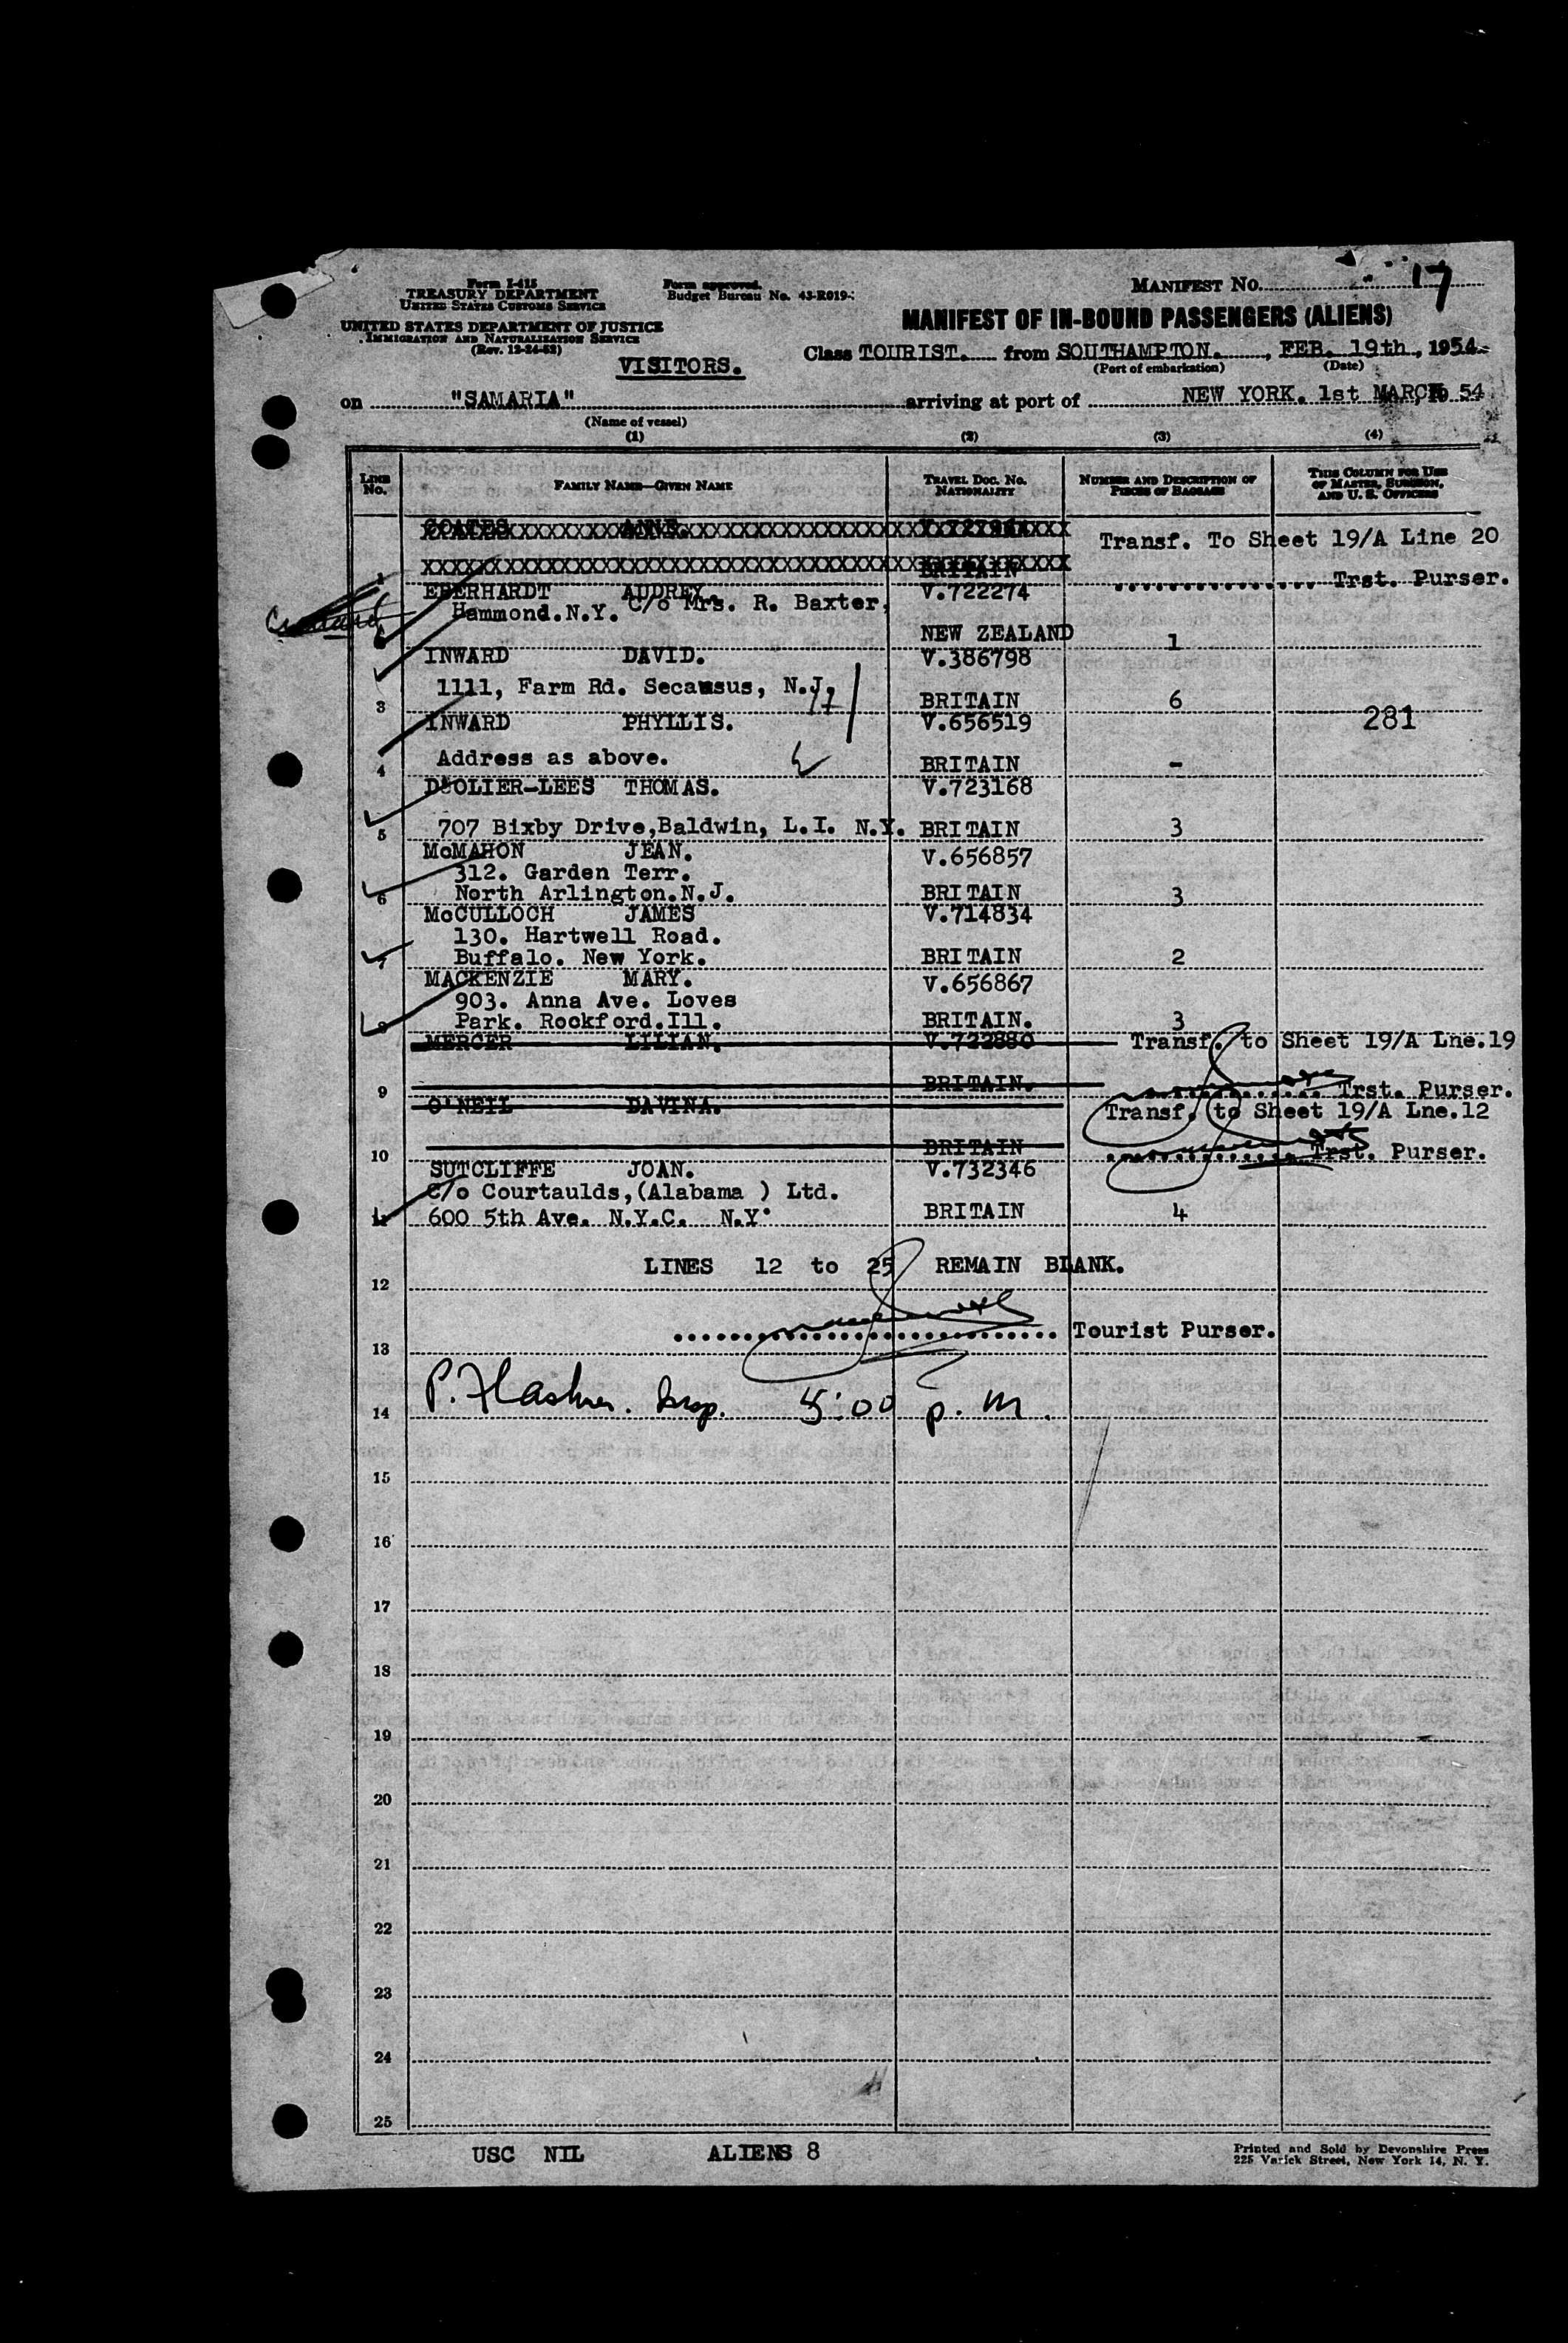 Form I-415
TREASURY DEPARTMENT
UNITED STATES CUSTOMS SERVICE
UNITED STATES DEPARTMENT OF JUSTICE
IMMIGRATION AND NATURALIZATION SERVICE
(Rev. 12-24-52)
Form approved.
Budget Bureau No. 43-R019-
MANIFEST NO. 17
MANIFEST OF IN-BOUND PASSENGERS (ALIENS)
VISITORS.
Class TOURIST. from SOUTHAMPTON. , FEB. 19th, 1954
(Port of embarkation) (Date)
on "SAMARIA" arriving at port of NEW YORK. 1st MARCH 54
(Name of vessel)
(1) (2) (3) (4)
LINE No. FAMILY NAME—GIVEN NAME TRAVEL DOC. NO. NATIONALITY NUMBER AND DESCRIPTION OF PIECES OF BAGGAGE THIS COLUMN FOR USE OF MASTER, SURGEON, AND U. S. OFFICERS
COATES ANNE.
Transf. To Sheet 19/A Line 20
1 BRITAIN Trst. Purser.
EBERHARDT AUDREY. V.722274
Hammond.N.Y. C/o Mrs. R. Baxter,
NEW ZEALAND 1
INWARD DAVID. V.386798
1111, Farm Rd. Secausus, N.J.
3 BRITAIN 6
INWARD PHYLLIS. V.656519 281
4 Address as above. BRITAIN -
D'OLIER-LEES THOMAS. V.723168
5 707 Bixby Drive,Baldwin, L.I. N.Y. BRITAIN 3
McMAHON JEAN. V.656857
312. Garden Terr.
6 North Arlington.N.J. BRITAIN 3
McCULLOCH JAMES V.714834
130. Hartwell Road.
7 Buffalo. New York. BRITAIN 2
MACKENZIE MARY. V.656867
903. Anna Ave. Loves
8 Park. Rockford.Ill. BRITAIN. 3
MERCER LILIAN. V.722880 Transf. to Sheet 19/A Lne.19
9 BRITAIN. Trst. Purser.
O'NEIL DAVINA. Transf. to Sheet 19/A Lne.12
10 BRITAIN Trst. Purser.
SUTCLIFFE JOAN. V.732346
C/o Courtaulds,(Alabama ) Ltd.
11 600 5th Ave. N.Y.C. N.Y. BRITAIN 4
LINES 12 to 25 REMAIN BLANK.
12
Tourist Purser.
13
14 Insp. 5:00 p.m.
15
16
17
18
19
20
21
22
23
24
25
USC NIL ALIENS 8
Printed and Sold by Devonshire Press
225 Varick Street, New York 14, N. Y.